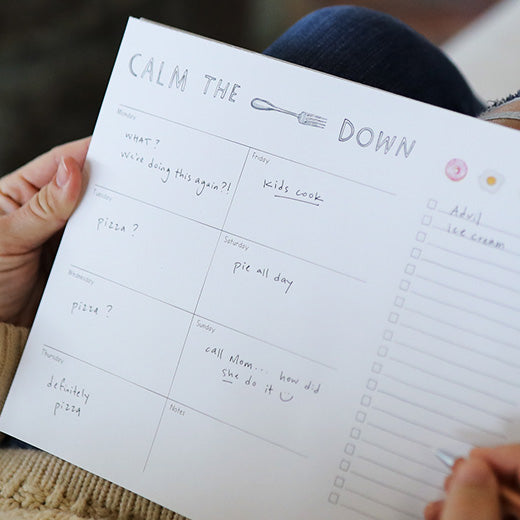 CALM THE DOWN
Monday
WHAT?
we're doing this again?!
Tuesday
pizza?
Wednesday
pizza?
Thursday
definitely
pizza
Friday
kids cook
Saturday
pie all day
Sunday
call Mom... how did
she do it
Notes
Advil
ice cream